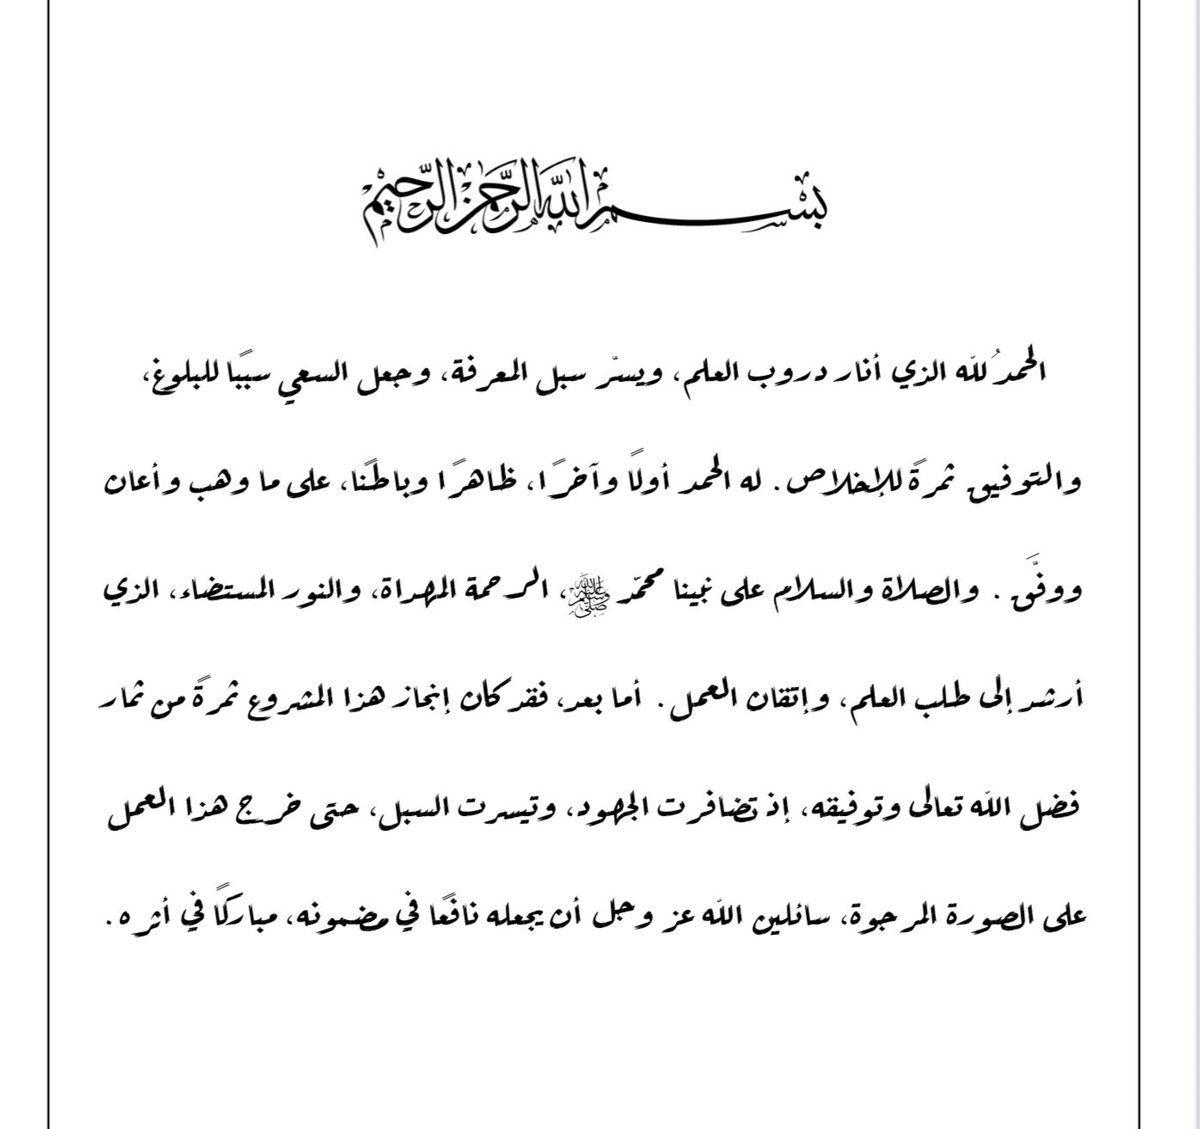 بسم الله الرحمن الرحيم
الحمدُ لله الذي أنار دروب العلم، ويسّر سبل المعرفة، وجعل السعي سببًا للبلوغ،
والتوفيق ثمرةً للإخلاص. له الحمد أولًا وآخرًا، ظاهرًا وباطنًا، على ما وهب وأعان
ووفَّق. والصلاة والسلام على نبينا محمّد ﷺ، الرحمة المهداة، والنور المستضاء، الذي
أرشد إلى طلب العلم، وإتقان العمل. أما بعد، فقد كان إنجاز هذا المشروع ثمرةً من ثمار
فضل الله تعالى وتوفيقه، إذ تضافرت الجهود، وتيسرت السبل، حتى خرج هذا العمل
على الصورة المرجوة، سائلين الله عز وجل أن يجعله نافعًا في مضمونه، مباركًا في أثره.